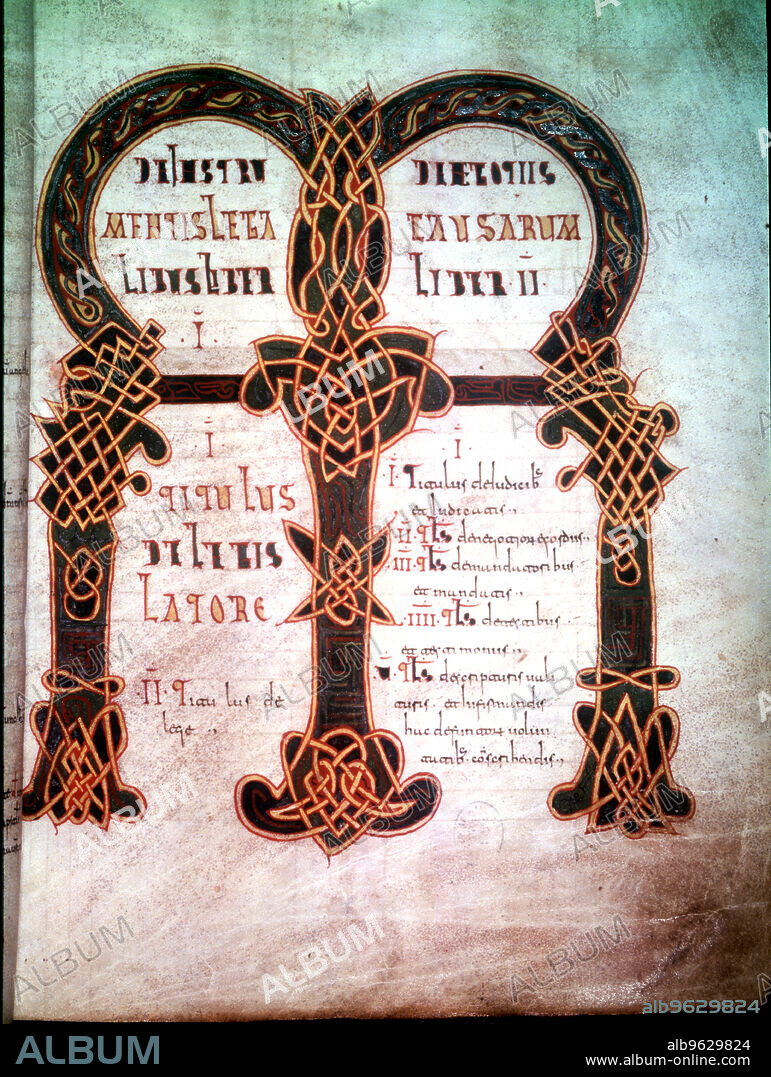 DE INSTRU
MENTIS LEGA
LIBUS LIBER
·Ī·
DE NEGOTIIS
CAUSARUM
LIBER ·II·
Ī
TITULUS
DE LEGIS
LATORE
II· Titulus de
lege
Ī
·I· Titulus de iudicibus
et iudicatis
II· tls de negotiorum
III· tls de mandatoribus
et mandatis
IIII· tls de testibus
et testimoniis
V· tls
huc
ALBUM
alb9629824
ALBUM
alb9629824
www.album-online.com